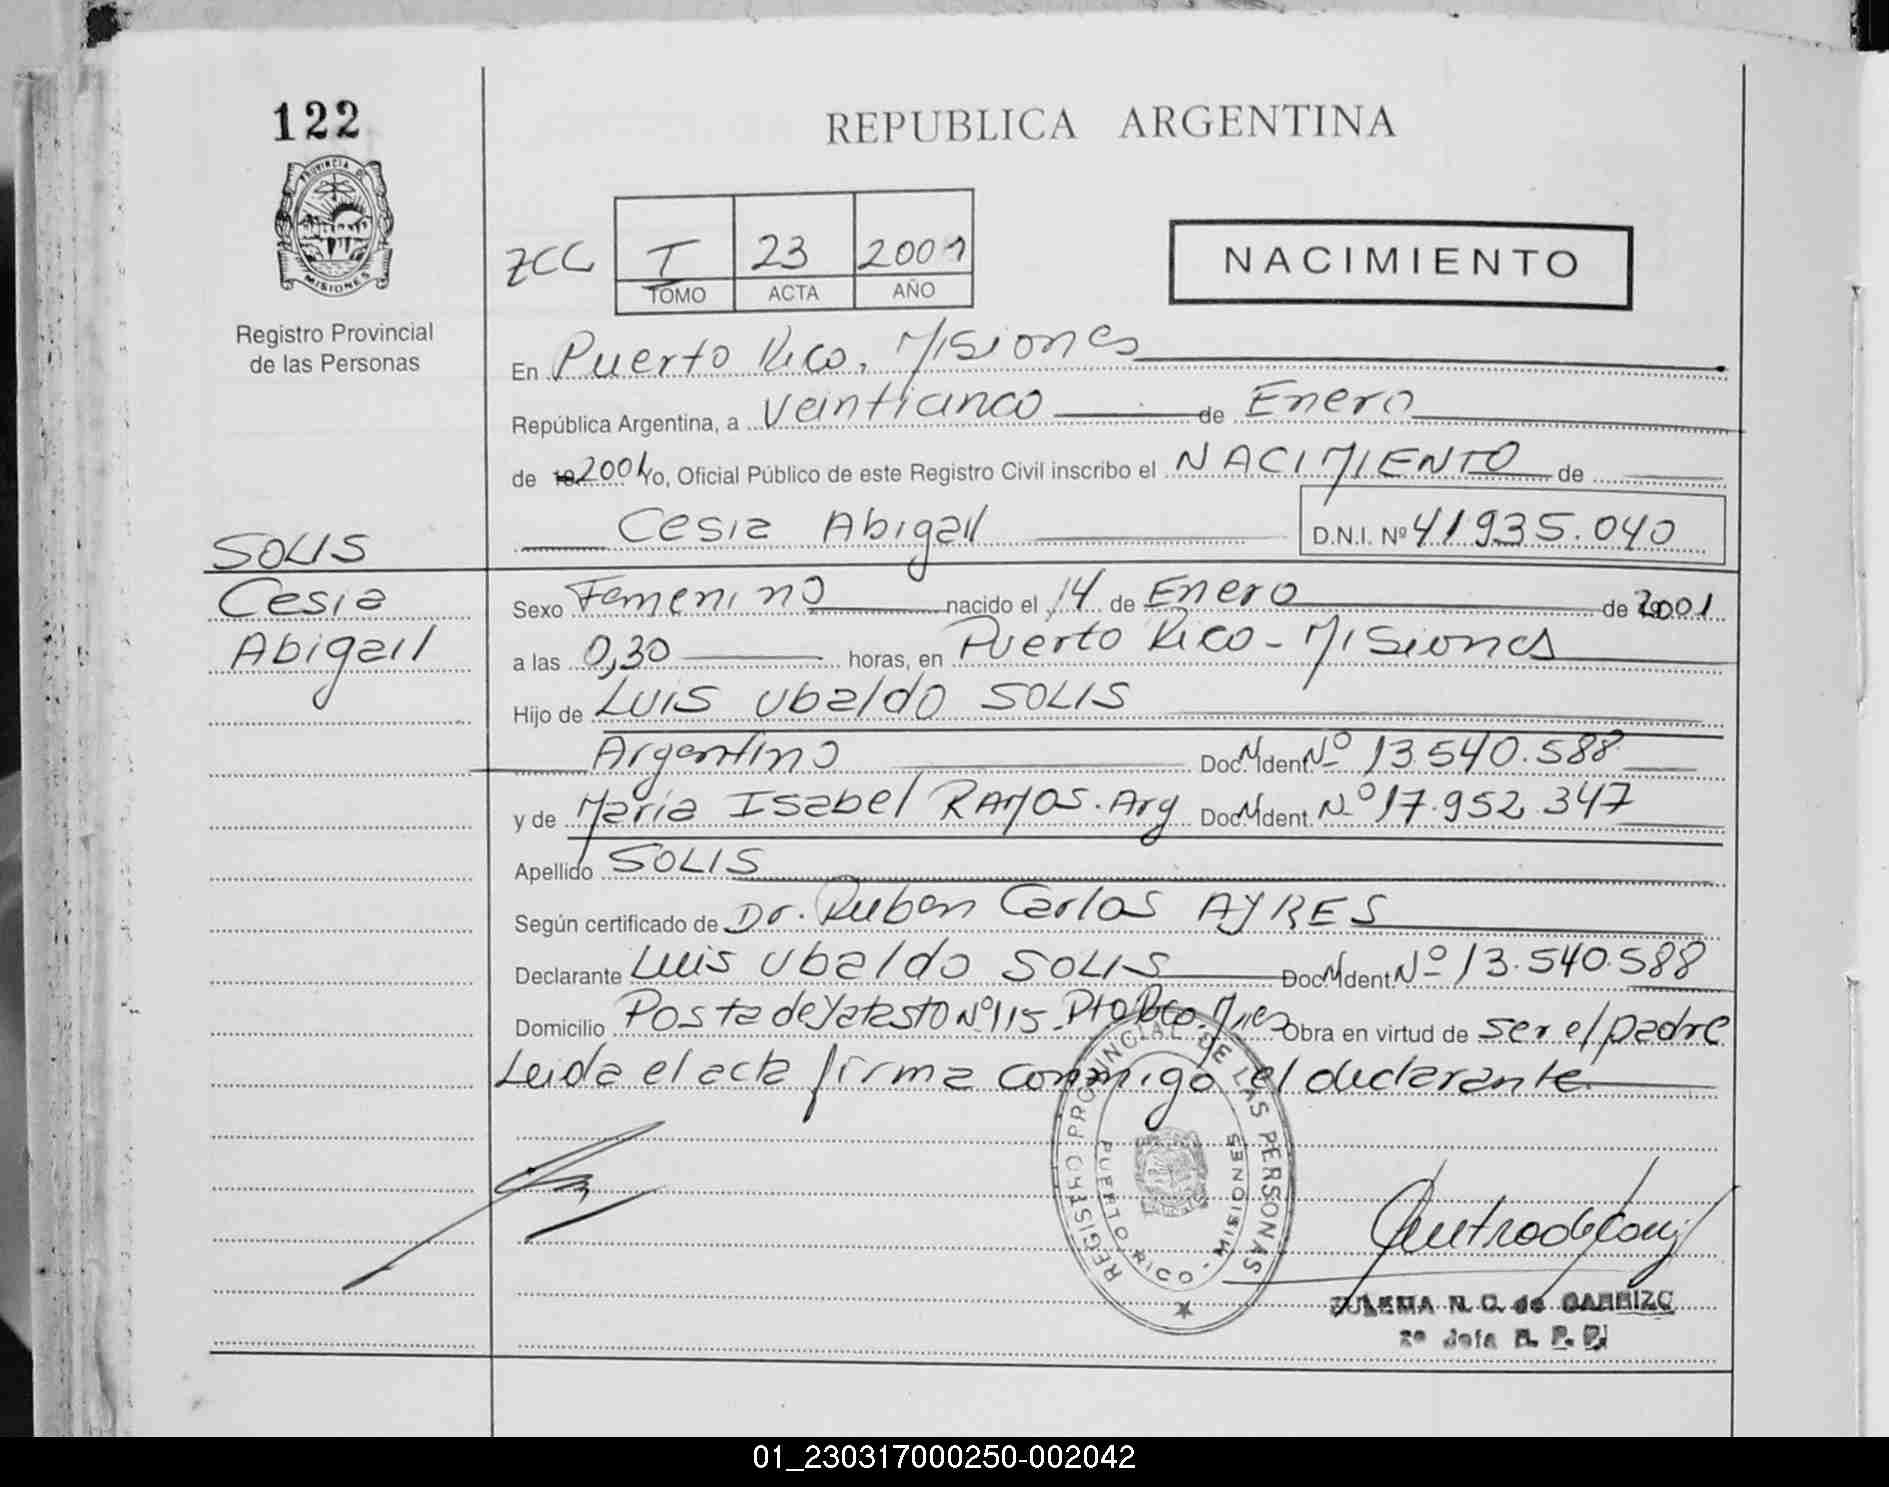 122
REPUBLICA ARGENTINA
PROVINCIA DE
MISIONES
Registro Provincial
de las Personas
ZCC T 23 2001
TOMO ACTA AÑO
NACIMIENTO
En Puerto Rico, Misiones
República Argentina, a veinticinco de Enero
de 19 2001 Yo, Oficial Público de este Registro Civil inscribo el NACIMIENTO de
Cesia Abigail D.N.I. Nº 41935.040
SOLIS
Cesia
Abigail
Sexo Femenino nacido el 14 de Enero de 2001
a las 0,30 horas, en Puerto Rico - Misiones
Hijo de LUIS Ubaldo SOLIS
Argentino Doc. Ident. Nº 13.540.588
y de María Isabel RAMOS. Arg Doc. Ident. Nº 17.952.347
Apellido SOLIS
Según certificado de Dr. Ruben Carlos AYRES
Declarante Luis Ubaldo SOLIS Doc. Ident. Nº 13.540.588
Domicilio Posta de Yatasto Nº 115. Pto Rco. Mnes Obra en virtud de ser el padre
Leida el acta firma conmigo el declarante
REGISTRO PROVINCIAL DE LAS PERSONAS
PUERTO RICO - MISIONES
ZULEMA N. C. de
2º Jefa R. P. P.
01_230317000250-002042